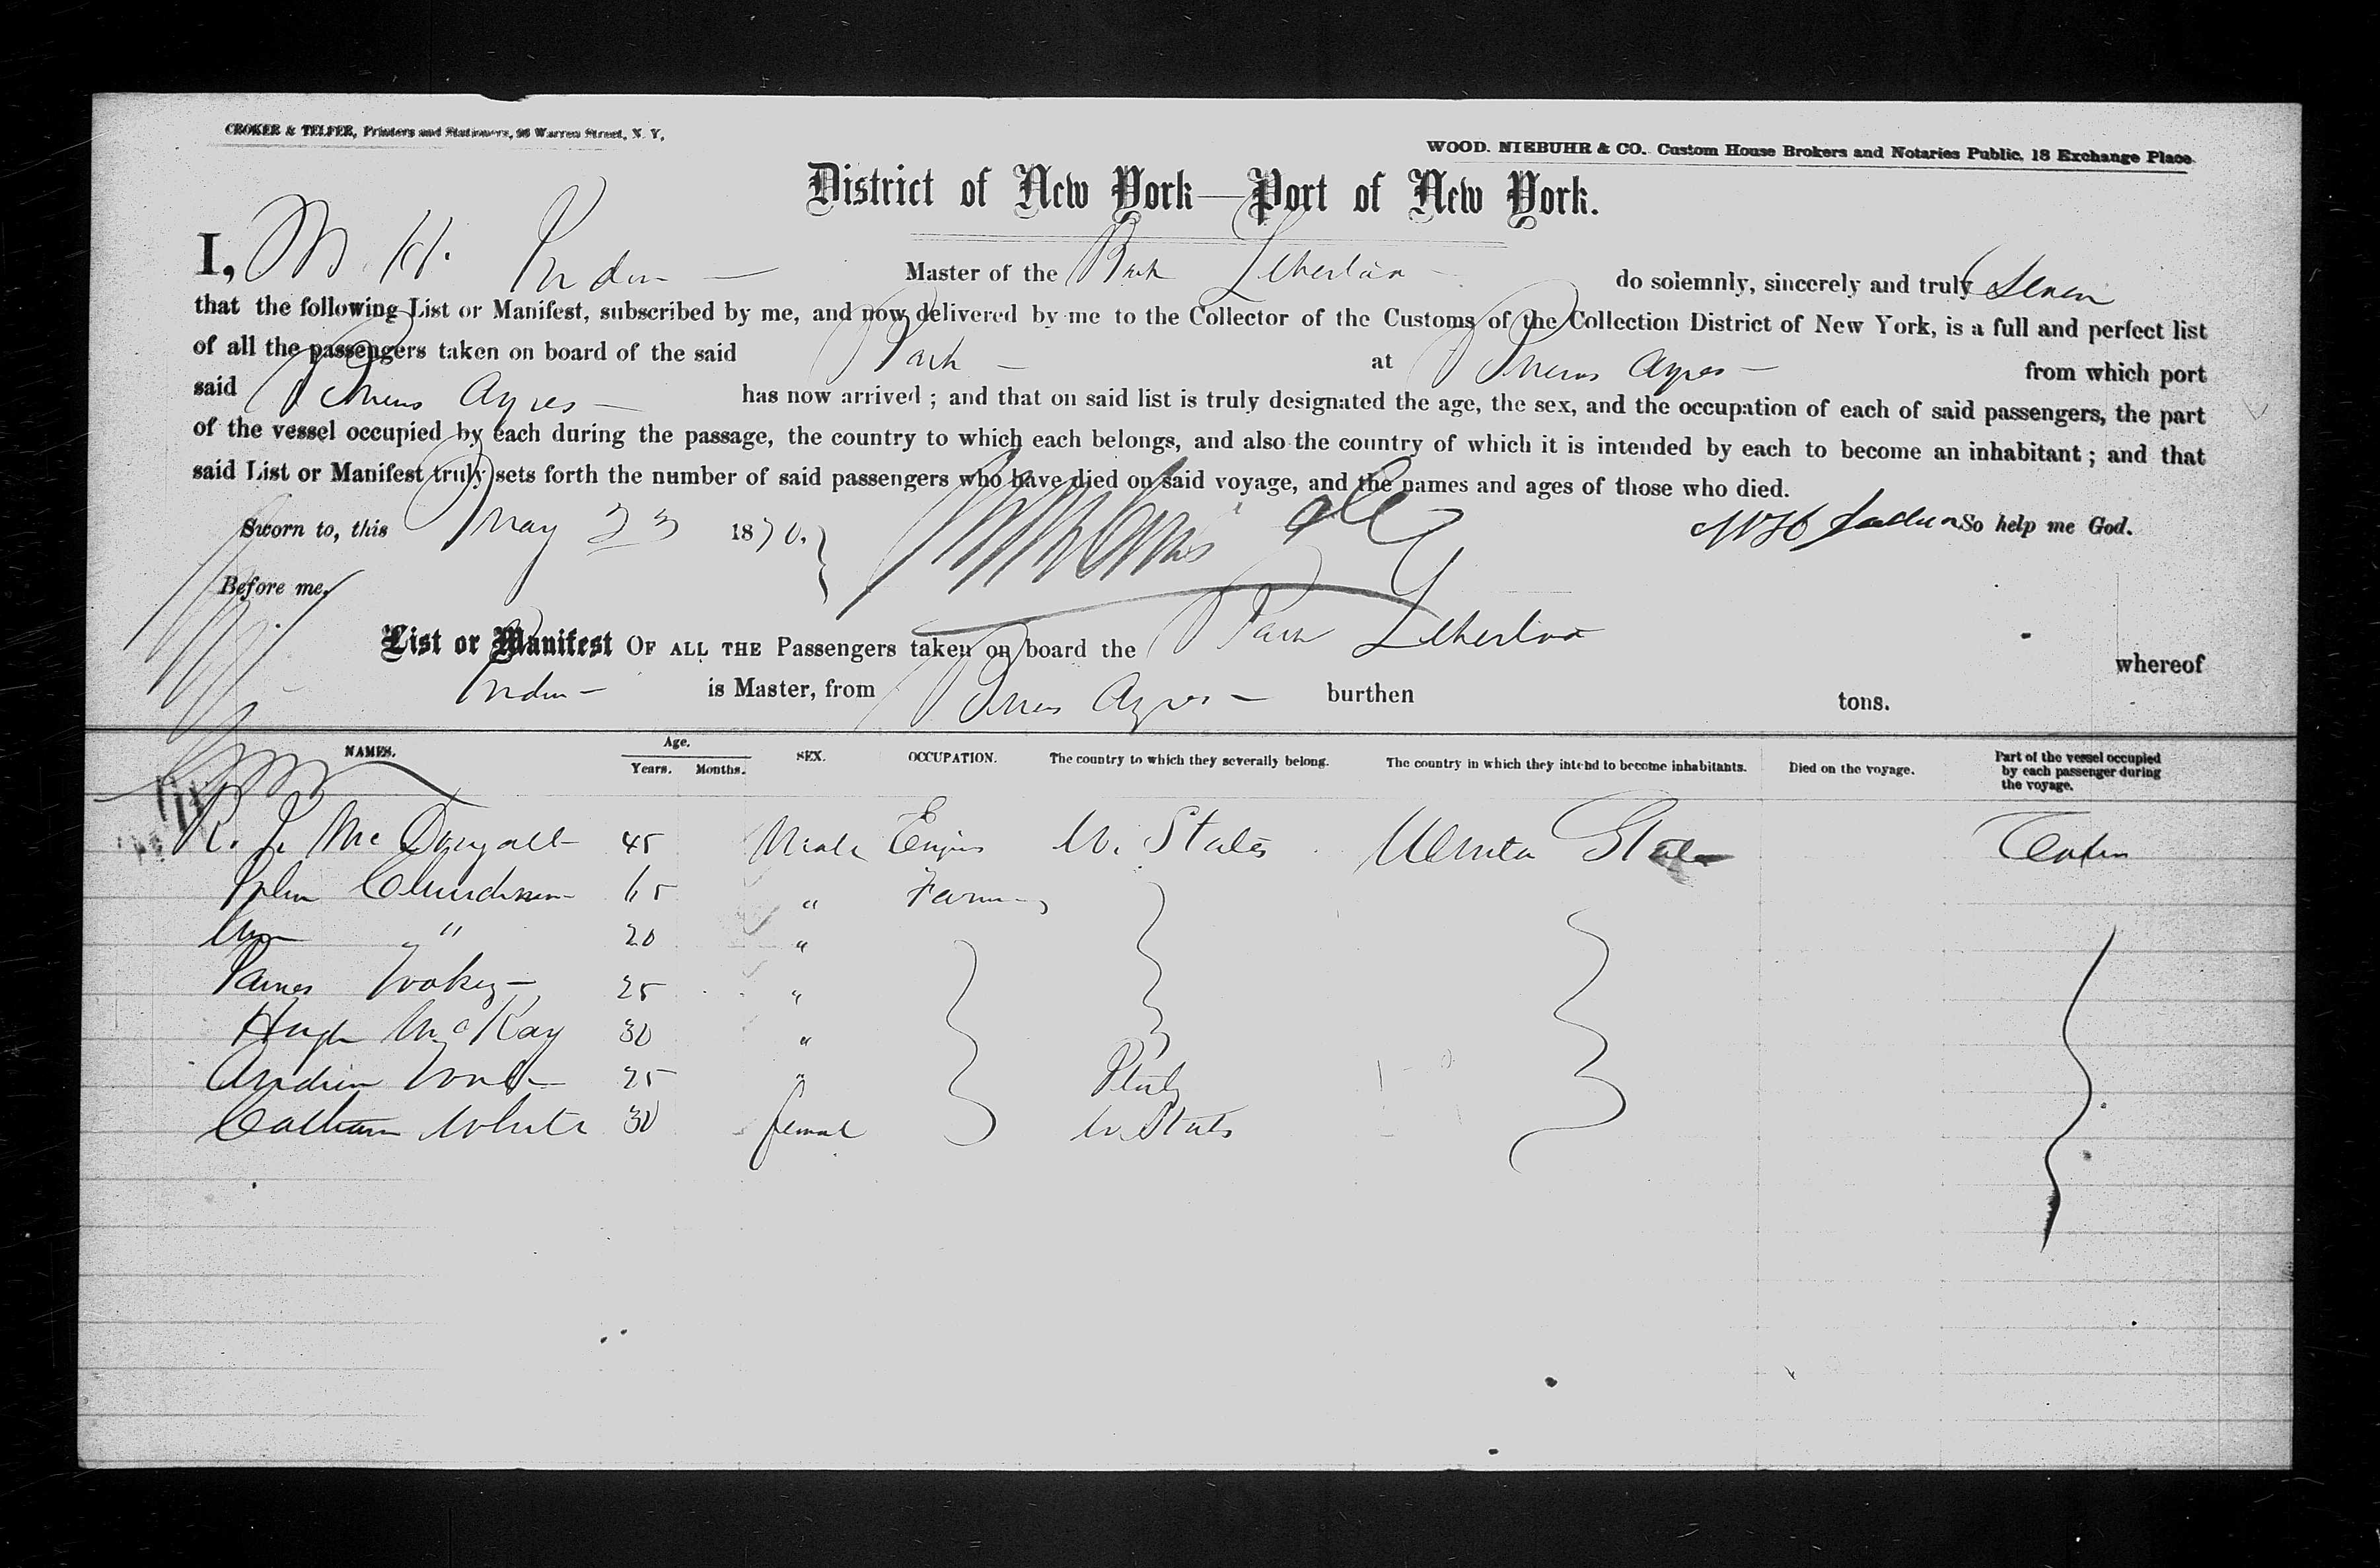 CROKER & TELFER, Printers and Stationers, 96 Warren Street, N. Y.
WOOD. NIEBUHR & CO. Custom House Brokers and Notaries Public, 18 Exchange Place
District of New York—Port of New York.
I, M. H. Master of the Bark do solemnly, sincerely and truly
that the following List or Manifest, subscribed by me, and now delivered by me to the Collector of the Customs of the Collection District of New York, is a full and perfect list
of all the passengers taken on board of the said Bark — at Buenos Ayres — from which port
said Buenos Ayres — has now arrived ; and that on said list is truly designated the age, the sex, and the occupation of each of said passengers, the part
of the vessel occupied by each during the passage, the country to which each belongs, and also the country of which it is intended by each to become an inhabitant ; and that
said List or Manifest truly sets forth the number of said passengers who have died on said voyage, and the names and ages of those who died.
Sworn to, this May 23 1870. So help me God.
Before me,
List or Manifest OF ALL THE Passengers taken on board the Bark whereof
is Master, from Buenos Ayres — burthen tons.
NAMES. Age. Years. Months. SEX. OCCUPATION. The country to which they severally belong. The country in which they intend to become inhabitants. Died on the voyage. Part of the vessel occupied by each passenger during the voyage.
R. Mc Dougall 45 Male U. States United States Cabin
John 65 " Farmer
" 20 "
James 25 "
Hugh McKay 30 "
Andrew 25 "
White 30 female U. States